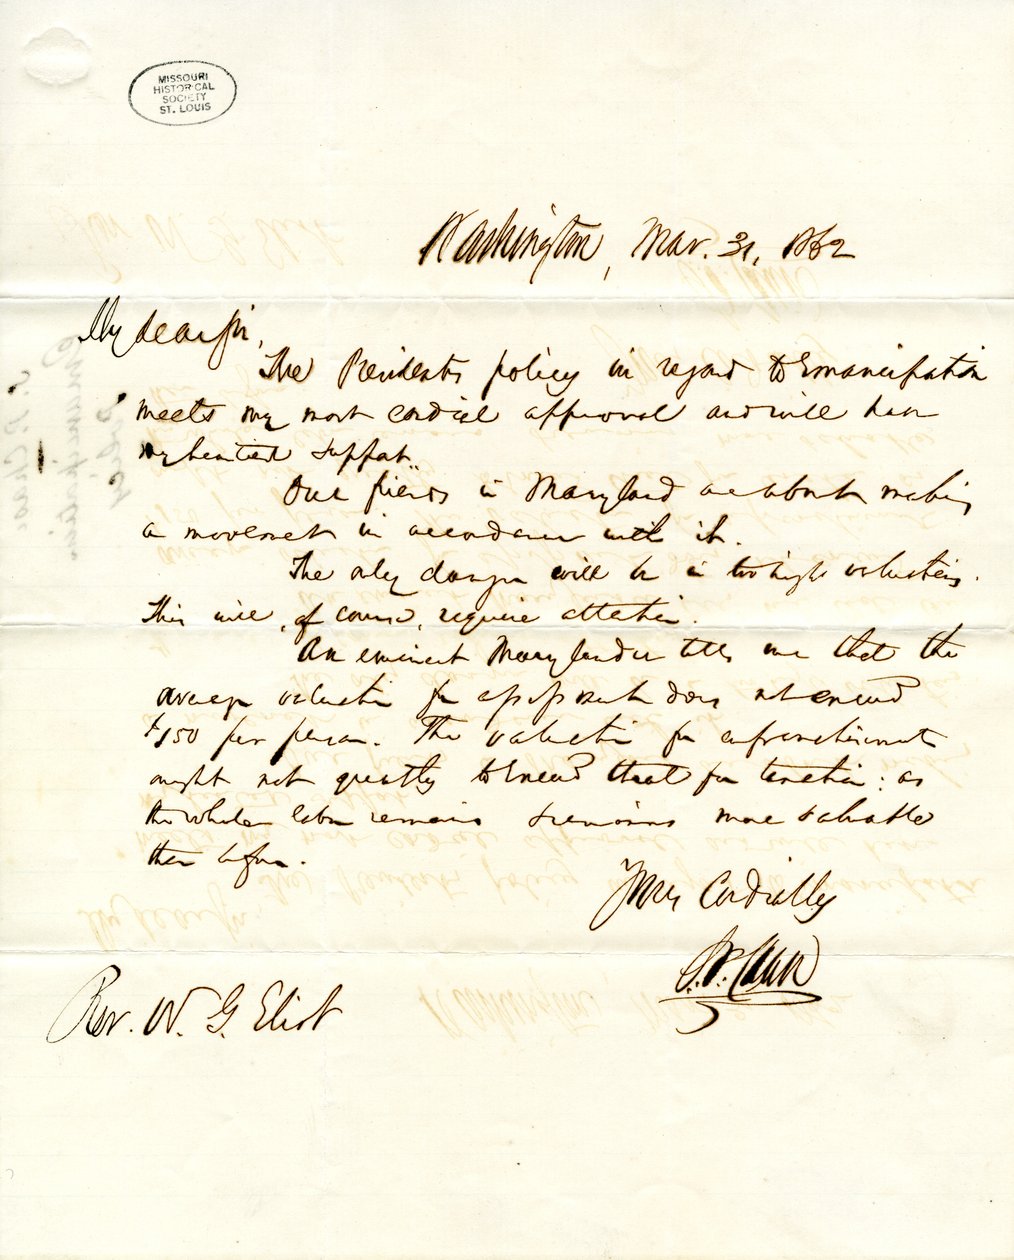 MISSOURI
HISTORICAL
SOCIETY
ST. LOUIS
Washington, Mar. 31, 1862
My dear Sir,
The President's policy in regard to Emancipation
meets my most cordial approval and will have
my hearties support.
Our friends in Maryland are about making
a movement in accordance with it.
The only danger will be in too high valuations.
This will, of course, require attention.
An eminent Marylander tells me that the
average valuation for assessment does not exceed
$150 per person. The valuation for enfranchisement
ought not greatly to exceed that for taxation: as
the whole labor remains &
more valuable
than before.
Yours Cordially
S. P. Chase
Rev. W. G. Eliot
S. P. Chase
Emancipation
Policy